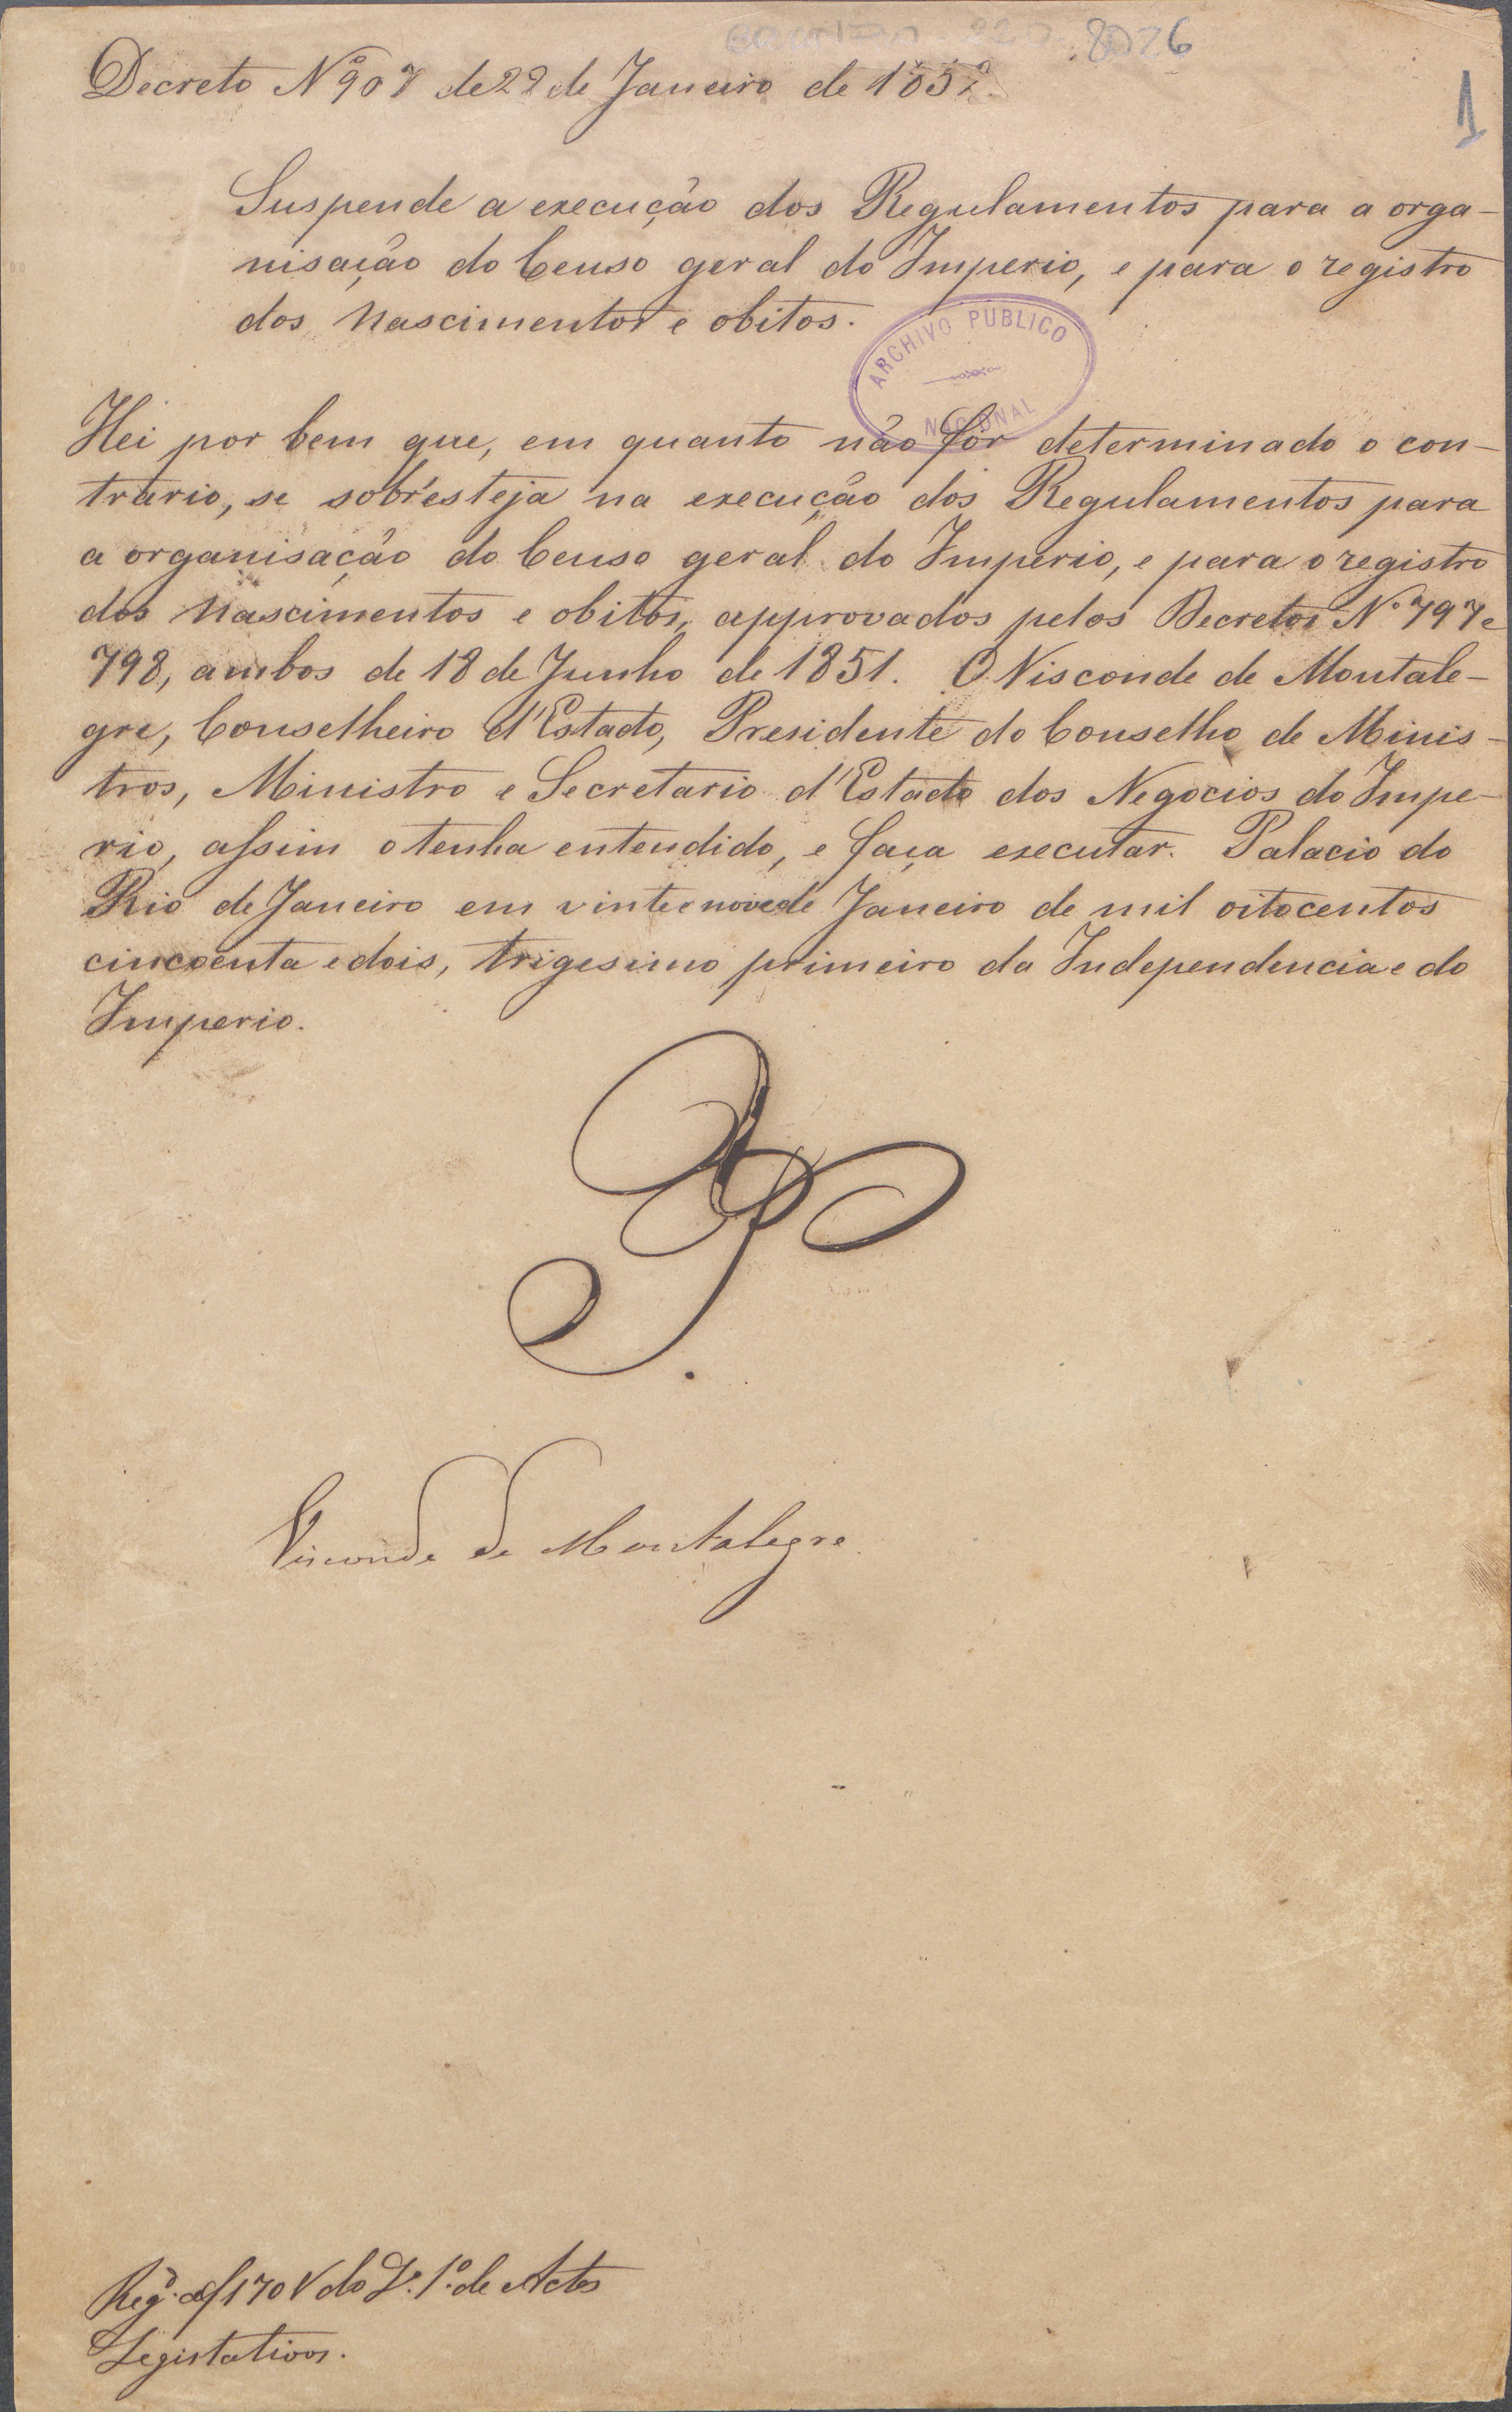 8026
1
Decreto Nº 907 de 29 de Janeiro de 1852.
Suspende a execução dos Regulamentos para a orga-
nisação do Censo geral do Imperio, e para o registro
dos Nascimentos e obitos.
ARCHIVO PUBLICO
NACIONAL
Hei por bem que, em quanto não fôr determinado o con-
trario, se sobr'esteja na execução dos Regulamentos para
a organisação do Censo geral do Imperio, e para o registro
dos Nascimentos e obitos, approvados pelos Decretos Nº 797 e
798, ambos de 18 de Junho de 1851. O Visconde de Montale-
gre, Conselheiro d'Estado, Presidente do Conselho de Minis-
tros, Ministro e Secretario d'Estado dos Negocios do Impe-
rio, assim o tenha entendido, e faça executar. Palacio do
Rio de Janeiro em vinte e nove de Janeiro de mil oitocentos
cincoenta e dois, trigesimo primeiro da Independencia e do
Imperio.
Visconde de Montalegre.
Regº. a f 170 V do Lº. 1º. de Actos
Legislativos.